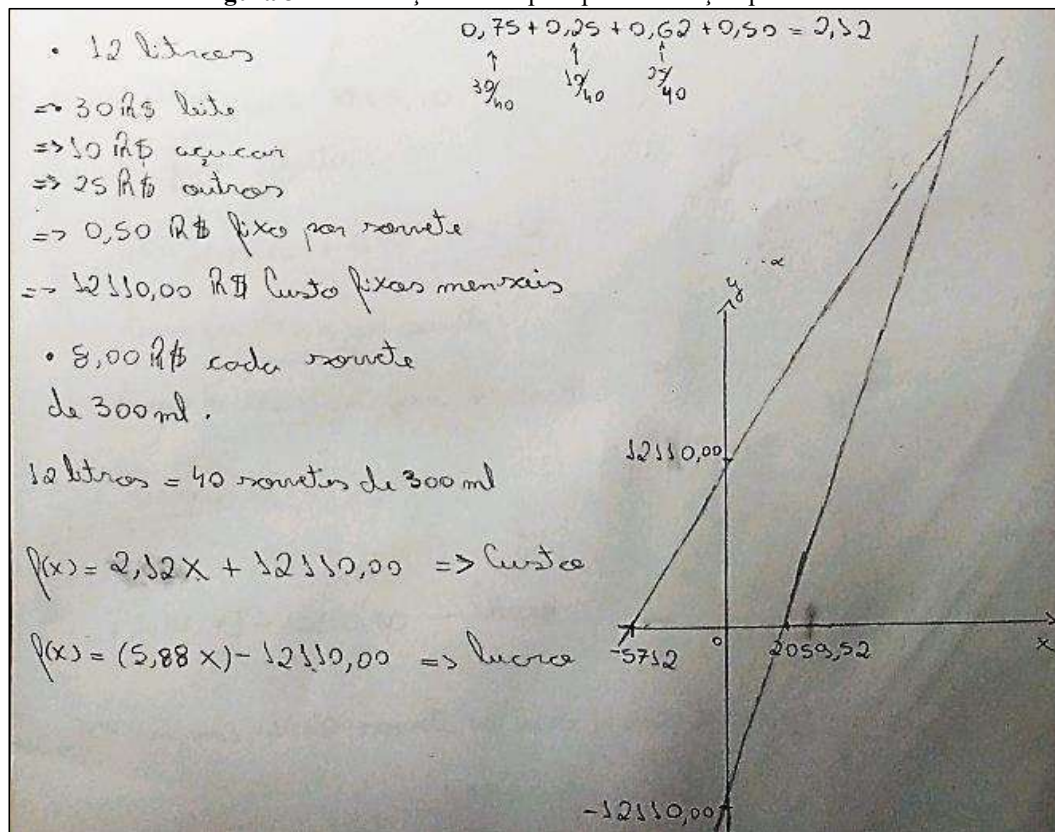 • 12 litros
=> 30 R$ leite
=> 10 R$ açucar
=> 25 R$ outros
=> 0,50 R$ fixo por sorvete
=> 12110,00 R$ Custo fixos mensais
• 8,00 R$ cada sorvete
de 300 ml.
12 litros = 40 sorvetes de 300 ml
f(x) = 2,12x + 12110,00 => Custo
f(x) = (5,88x) - 12110,00 => lucro
0,75 + 0,25 + 0,62 + 0,50 = 2,12
30/40 10/40 25/40
y
12110,00
-5712
0
2059,52
x
-12110,00